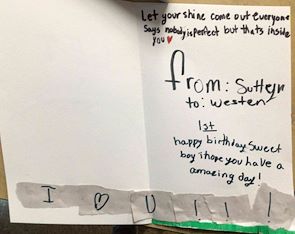 Let your shine come out everyone
Says nobody is perfect but thats inside
you ♥
from: Suttejn
to: westen
1st
happy birthday Sweet
boy i hope you have a
amazing day!
I ♡ U ! ! !